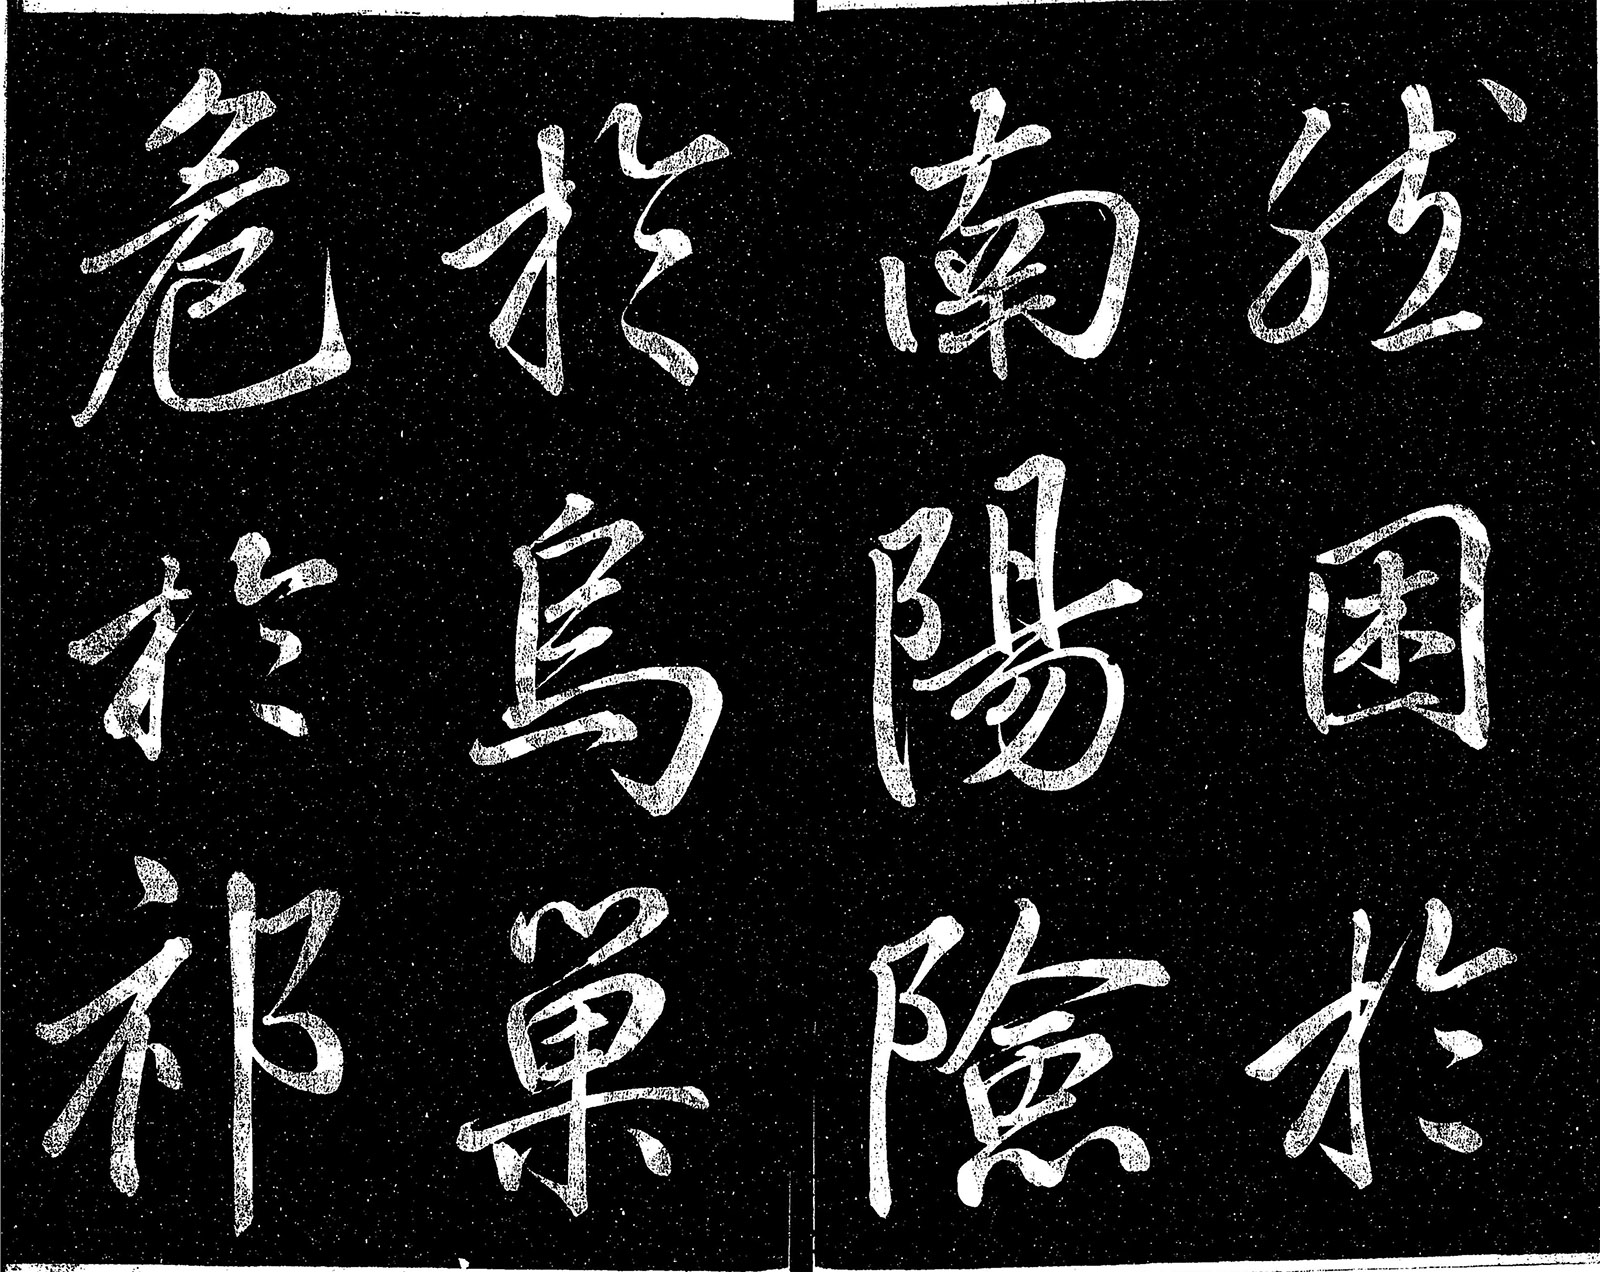 然困於
南陽險
於烏巢
危於祁